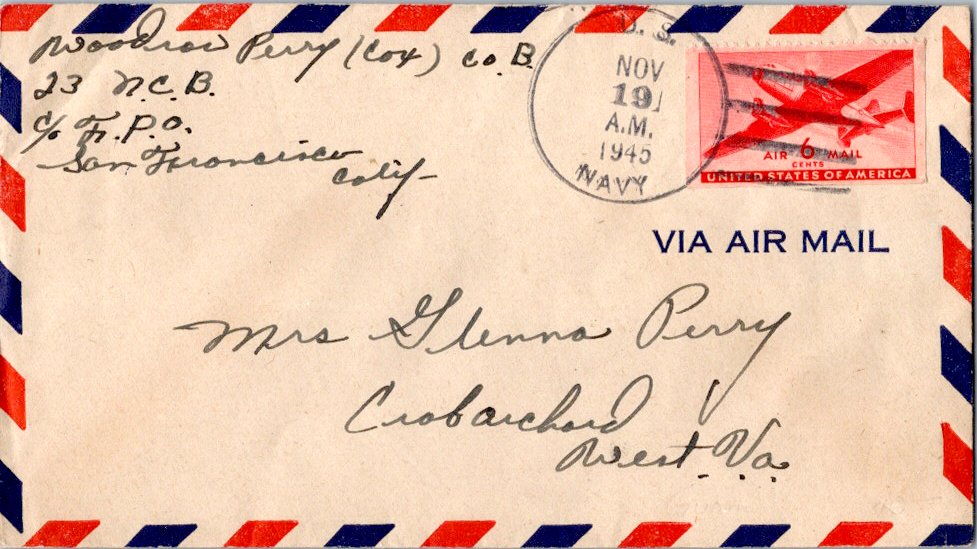 Woodrow Perry (Cox) Co. B.
23 N.C.B.
c/o F.P.O.
San Francisco
Calif-
U.S.
NOV
191
A.M.
1945
NAVY
AIR 6 MAIL
CENTS
UNITED STATES OF AMERICA
VIA AIR MAIL
Mrs Glenna Perry
Crabarchard
West. Va.